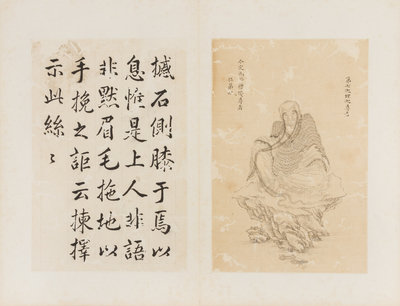 據石側膝于焉以
息惟是上人非語
非默眉毛拖地以
手挽之詎云揀擇
示此絲〻